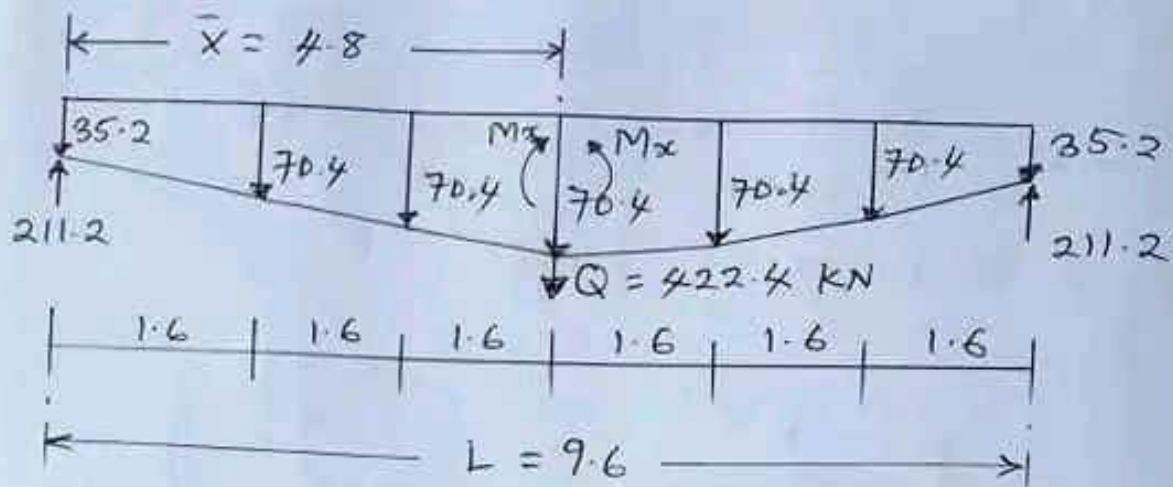 x̄ = 4.8
35.2 70.4 70.4 Mx 70.4 Mx 70.4 70.4 35.2
211.2 211.2
Q = 422.4 KN
1.6 1.6 1.6 1.6 1.6 1.6
L = 9.6